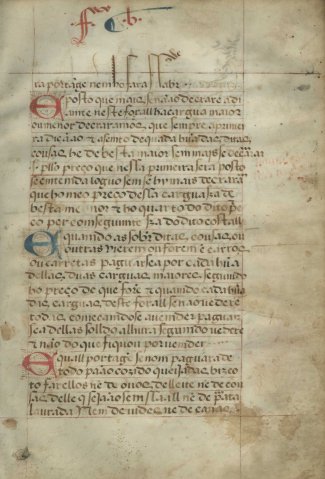 ra portagẽ nem ho fara saber
E posto que mais se nã declare a di
ante neste forall ha cargua maior
ou menor declaramos que sempre a primei
ra adiçã & assento de quada hũa das ditas
cousas he de besta maior sem mais se decrarar
s. pllo preço que nessa primeira sera posto
se entenda loguo sem se hy mais decrarar
que ho meo preço dessa cargua sera de
besta menor & ho quarto do dito pre
ço per conseguinte sera do dito costall
E quando as sobre ditas cousas ou
outras vierem ou forem ẽ carros
ou carretas paguarsea por cada hũa
dellas duas carguas maiores segundo
ho preço de que forẽ & quando cada hũa
das carguas deste forall se nã vẽderẽ
todas começandose a vender paguar
sea dellas soldo a livra segundo vẽderẽ
& não do que fiquou por vender
A quall portagẽ se nom paguara de
todo pão cozido queijadas bizco
to farellos nẽ de ovos de leite nẽ de cou
sas delle q sejão sem sall nẽ de prata
laurada Nem de vides nẽ de canas